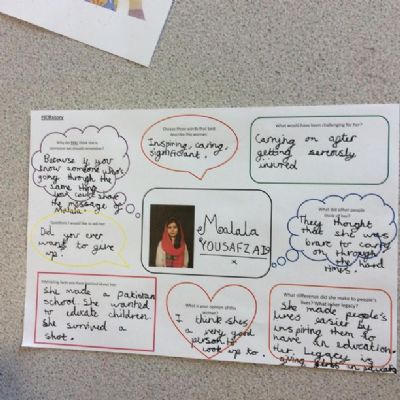 HERstory
Why do you think she is
someone we should remember?
Because if you
know someone who's
going through the
same thing
you could share
the message of
Malala.
Choose three words that best
describe this woman:
Inspiring, caring,
significant.
What would have been challenging for her?
Carrying on after
getting seriously
injured
Questions I would like to ask her:
Did you ever
want to give
up.
Malala
YOUSAFZAI
What did other people
think of her?
They thought
that she was
brave to carry
on through
the hard
times.
She made a pakistan
school. She wanted
to educate children.
She survived a
shot.
What is your opinion of this
woman?
I think shes
a very good
person to
look up to.
What difference did she make to people's
lives? What is her legacy?
She made people's
lives easier by
inspiring them to
have an education.
Her Legacy is
giving girls an